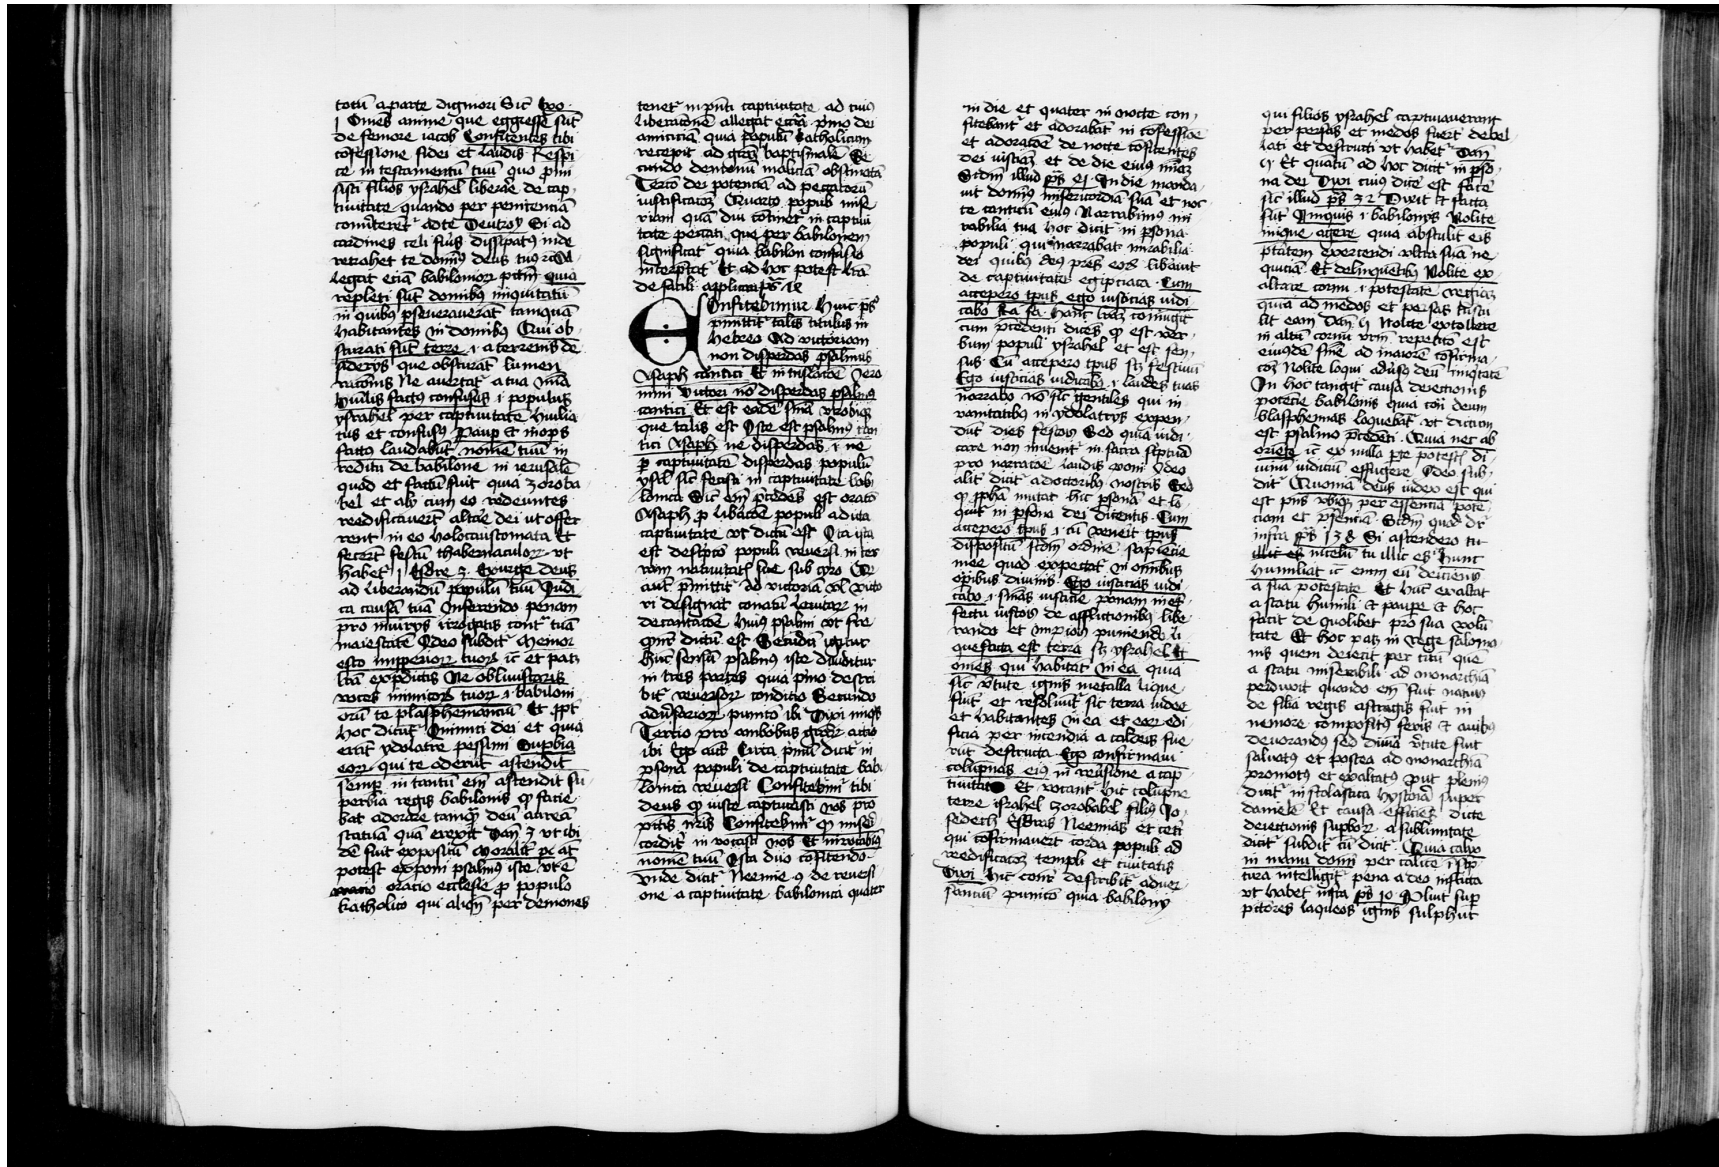 totū a parte digniori Sic Exo.
j Om̄es anime que egresse sūt
de femore iacob Confitentes tibi
cōfessione fidei et laudis Respi
ce in testamentū tuū quo p̄mi
sisti filios ysrahel liberare de cap
tiuitate quando per penitenciā
conūterent᷑ ad te Deutroꝝ Si ad
cardines celi fuīs dissipatꝰ inde
retrahet te domīꝰ deus tuꝰ
legat eciā babilonior᷑ Quia
repleti sūt domibꝰ iniquitatū
in quibꝰ ꝑseuerauerāt tamquā
habitantes in domibꝰ Qui ob
scurati sūt terre .i. a terrenis de
siderijs que obscurāt lumen
racōnis Ne auertat᷑ a tua
hūilis factꝰ confusus .i. populus
ysrahel per captiuitatē humilia
tus et confusus Paup̄ et inops
laudabūt nomē tuū in
reditu de babilone in ierusalē
quod et factū fuit quia zoroba
bel et alij cum eo redeuntes
reedificauerūt altare dei ut offer
rent in eo holocaustomata Et
fecerūt festū thabernaculor᷑ vt
habet᷑ j Esdre 3. Exurge deus
ad liberandū populū tuū Judi
ca causā tuā Inferendo penam
pro iniurijs irrogatis contᷓ tuā
maiestatē Ideo subdit᷑ Memor
esto improperior᷑ tuor᷑ ic̄ et patꝫ
lr̄a ex p̄dictis Ne obliuiscaris
voces inimicor᷑ tuor᷑ .i. babiloni
orū te blasphemanciū Et ꝓpt̄
hoc dicūt᷑ Inimici dei et quia
erāt ydolatre pessimi Suꝑbia
eor᷑ qui te oderūt ascendit
semp̄ in tantū em̄ ascendit su
perbia regis babilonis ꝙ facie
bat adorare tamqᷓ deū aureā
statuā quā erexit Dan̄ 3 vt ibi
dē fuit expositū Moralit᷑ aūt
potest exponi psalmꝰ iste vt ē
oratio ecclesie ꝓ populo
katholico qui aliqn̄ per demones
tenet᷑ in p̄nti captiuitate ad cuiꝰ
liberacionē allegat ecc̄ia p̄mo dei
amiciciā quia populū katholicum
recepit ad grām baptismalē Se
cundo demonū maliciā obstinatā
Tercō dei potenciā ad peccatorū
iustificacōꝫ Quarto populi mise
riam quā diu cōtinet᷑ in captiui
tate peccati que per babilonem
significat᷑ quia babilon confusio
interp̄tat᷑ Et ad hoc potest lr̄a
de facili applicari
Onfitebimur Huic ps̄
p̄mittit᷑ talis titulus in
hebreo Ad victoriam
non disperdas psalmus
Asaph cantici Et in traslacōe Jero
nimi Victori nō disperdas psalmꝰ
cantici Et est eadē snīa vtrobiqꝫ
que talis est Iste est psalmꝰ can
tici Asaph ne disperdas .i. ne
ꝑ captiuitatē disperdas populū
ysrl̄ sic̄ fecisti in captiuitate babi
lonica Sic̄ em̄ p̄cedēs est oratō
Asaph ꝓ libacōe populi a dicta
captiuitate vt dictū est Ita ista
est descripcō populi reuersi in ter
ram natiuitatꝭ sue sub cyro Qd
aut̄ p̄mittit᷑ Ad victoriā vl̄ victo
ri designat conatū leuitar᷑ in
decantacōe huiꝰ psalmi vt fre
quent̄ dictū est Secūdū igitur
hūc sensū psalmꝰ iste diuiditur
in tres partes quia p̄mo descri
bit᷑ reuersor᷑ conditio Secundo
aduersarior᷑ punicō ibi Dixi iniqꝭ
Tercio pro ambobus grār᷑ actio
ibi Ego aut̄ Circa p̄mū dicit᷑ in
ꝑsona populi de captiuitate babi
lonica reuersi Confitebimᷓ tibi
deus ꝙ iuste captiuasti nos pro
pccīs nr̄is Confitebimᷓ ꝙ miseri
cordit᷑ reuocasti nos Et inuocabimꝰ
nomē tuū Ista duo cōfitendo
vnde dicit᷑ Neemie 9 de reuersi
one a captiuitate babilonica quater
in die et quater in nocte con
fitebant᷑ et adorabāt in cōfessiōe
et adoracōe de nocte cōfitentes
dei iusticiā et de die eiꝰ mīam
Scdm̄ illud ps̄ 41 In die manda
uit domīꝰ misericordiā suā et noc
te canticū eiꝰ Narrabimꝰ mi
rabilia tua hoc dicit᷑ in ꝑsona
populi qui narrabat mirabilia
dei quibꝰ deꝰ pres̄ eor᷑ libauit
de captiuitate egipciaca Cum
accepero tp̄us ego iusticias iudi
cabo Ra. sa. hanc lr̄aꝫ cōiungit
cum p̄cedenti dicēs ꝙ est ver
bum populi ysrahel et est sen
sus Cū accepero tp̄us scꝫ festiuū
Ego iusticias iudicabo .i. laudes tuas
narrabo nō sic̄ gentiles qui in
vanitatibꝰ in ydolatrijs expen
dūt dies festos Sed quia iudi
care non inuenit᷑ in sacra scͥptura
pro narracōe laudis poni Ideo
alit᷑ dicit᷑ a doctoribꝰ nostris Sed
ꝙ ꝓpha mutat hic ꝑsonā et lo
quit᷑ in ꝑsona dei dicentis Cum
accepero tp̄us .i. cū venerit tp̄us
dispositū scdm̄ ordinē sapiencie
mee quod expectat in omībus
oꝑibus diuinis Ego iusticias iudi
cabo .i. snīas iusticie ponam in ef
fectu iustos de afflictionibꝰ libe
rando et impios puniendo Li
quefacta est terra scꝫ ysrahel Et
omēs qui habitāt in ea quia
sic̄ v̄tute ignis metalla lique
fiūt et resoluūt᷑ sic terra iudee
et habitantes in ea et eor᷑ edi
ficia per incendia a caldeis fue
rūt destructa Ego confirmaui
columpnas eiꝰ in reūsione a cap
tiuitate Et vocant᷑ hic columpne
terre israhel zorobabel filiꝰ Jo
sedech Esdras Neemias et ceti
qui cōfirmauerūt corda populi ad
reedificacōꝫ templi et ciuitatis
Dixi hic cons̄ describit᷑ aduer
sariū punicō quia babilony
qui filios ysrahel captiuauerant
per persas et medos fuerūt debel
lati et destructi vt habet᷑ Dan̄
Et quātū ad hoc dicit᷑ in ꝑso
na dei Dixi cuiꝰ dicē est facē
sic̄ illud ps̄ 32 Dixit et facta
sūt Iniquis .i. babilonijs Nolite
inique agere quia abstulit eis
ptātem exercendi vltra suā ne
quiciā Et delinquētibꝰ Nolite ex
altare cornu .i. potestatē regiā
quia ad medos et persas trastu
lit eam Dan̄ Nolite extollere
in altū cornu vrm̄ repeticō est
eiusdē snīe ad maiorē cōfirma
cōꝫ Nolite loqui aduīsꝰ deū iniqtatē
In hoc tangit᷑ causa deiectionis
potēcie babilonis quia contᷓ deum
blasphemias loquebāt᷑ vt dictum
est psalmo p̄cedēti Quia nec ab
oriēte ic̄ ex nulla parte potestꝭ di
uinū iudiciū effugere Ideo sub
dit᷑ Quoniā deus iudex est qui
est p̄ns vbiqꝫ per essenciā pote
ciam et p̄senciā Scdm̄ quod dr̄
infra ps̄ 138 Si ascendero in
celum tu illic es Hunc
humiliat ic̄ enim eū deiciens
a sua potestate Et hūc exaltat
a statu humili et paupe et hoc
facit de quolibet pro sua volū
tate Et hoc patꝫ in rege salomo
nis quem deiecit per
a statu miserabili ad monarchiā
perduxit quando em̄ fuit natus
de filia regis astragis fuit in
nemore compositꝰ feris et auibꝰ
deuorandꝰ sed diuīa v̄tute fuit
saluatꝰ et postea ad monarchiā
promotꝰ et exaltatꝰ put pleniꝰ
dicit᷑ in scolastica hystoria super
danielē Et causa efficiēs dicte
deiectionis suꝑbor᷑ a sublimitate
dicit᷑ subdit᷑ cū dicit᷑ Quia calix
in manu domī per calicē .i. scrip
tura intelligit᷑ pena a deo inflicta
vt habet᷑ infra ps̄ 10 Pluit sup̄
pccōres laqueos ignis sulphur